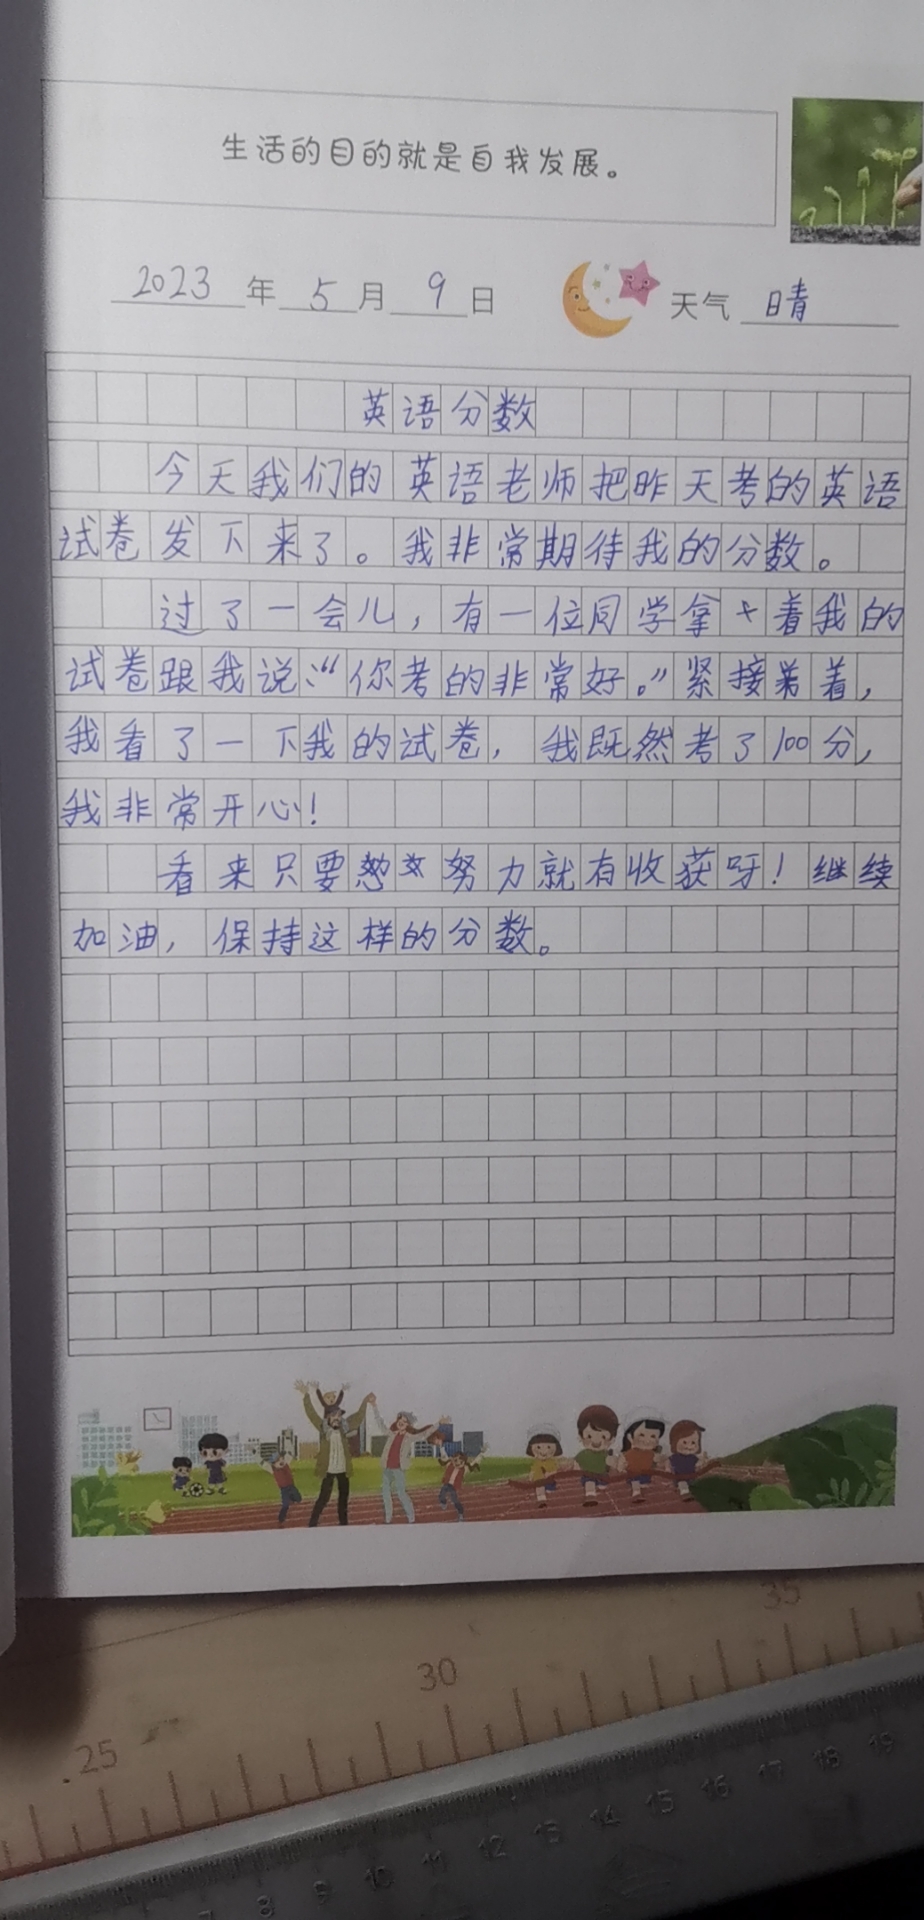 生活的目的就是自我发展。
2023年5月9日 天气 晴
英语分数
今天我们的英语老师把昨天考的英语
试卷发下来了。我非常期待我的分数。
过了一会儿，有一位同学拿着我的
试卷跟我说：“你考的非常好。”紧接着，
我看了一下我的试卷，我既然考了100分，
我非常开心！
看来只要努力就有收获呀！继续
加油，保持这样的分数。
25
30
35
7 8 9 10 11 12 13 14 15 16 17 18 19